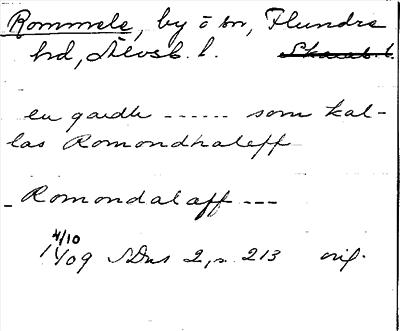 Rommele, by o sn, Flundre
hd, Älvsb. l. Skarab. l.
en gardh ------ som kal-
las Romondhaleff
_ Romondalaff ---
4/10
1409 SDns 2, s. 213 orig.